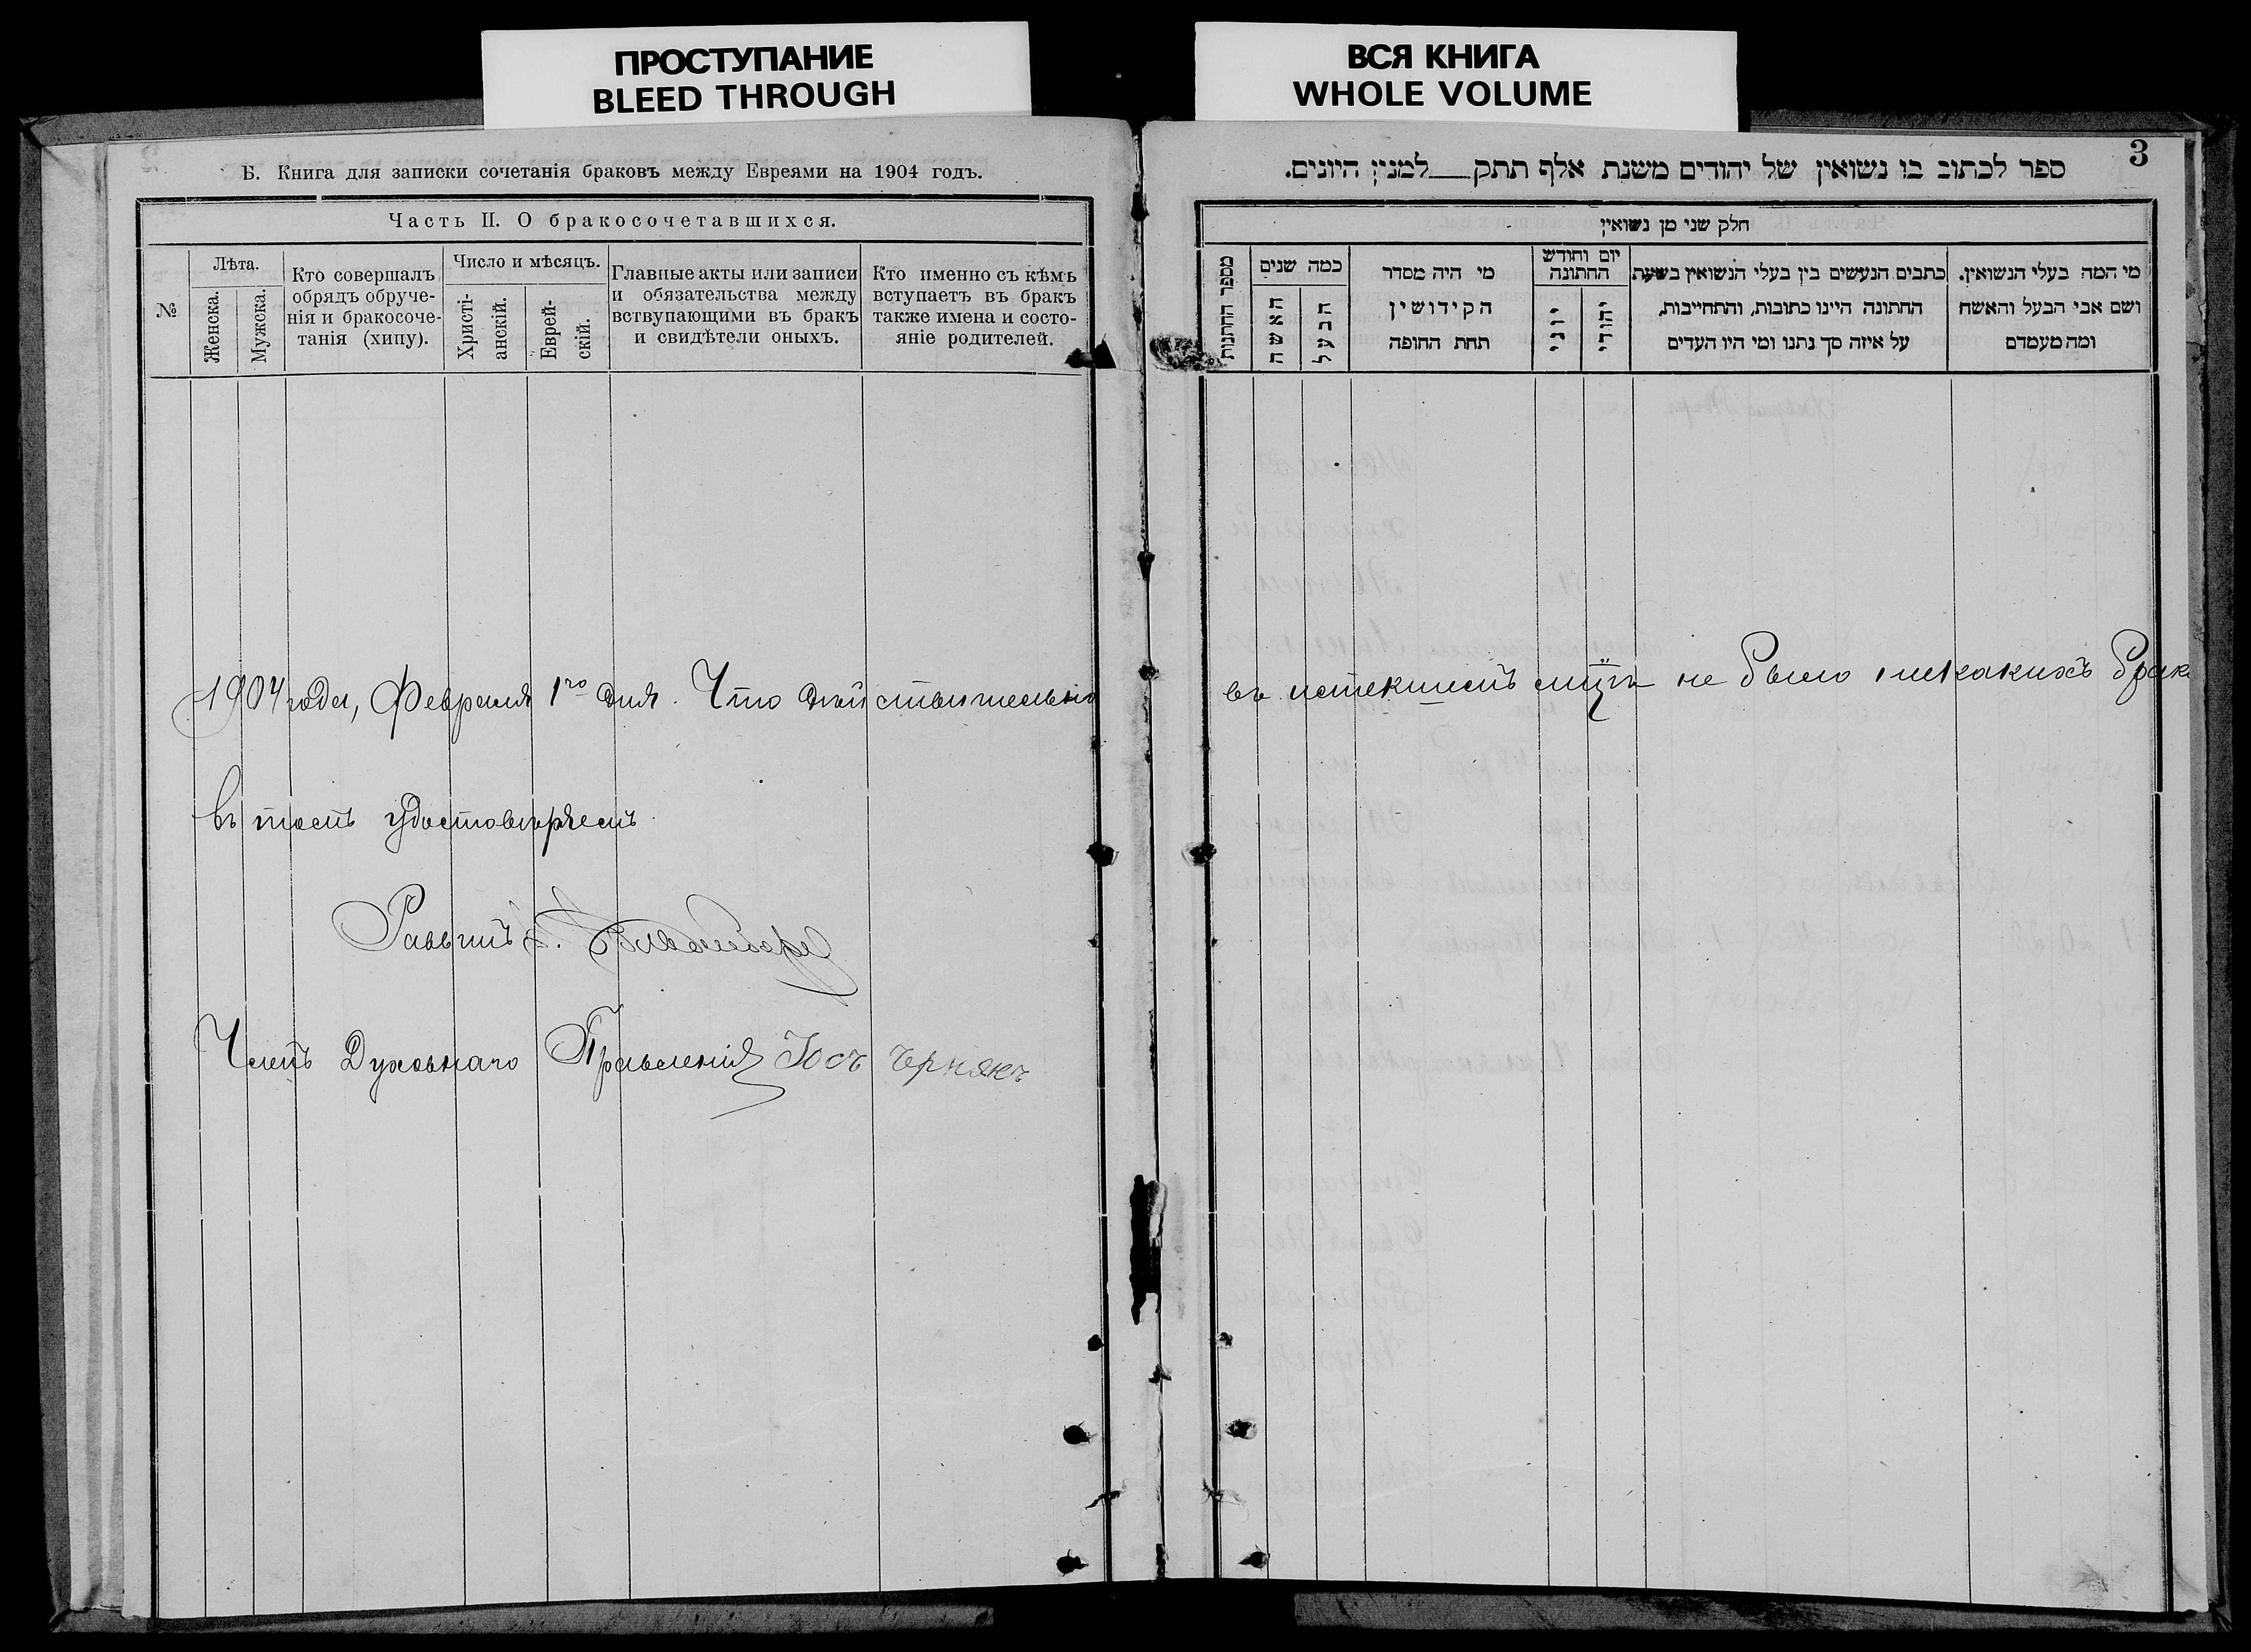 ПРОСТУПАНИЕ
BLEED THROUGH
ВСЯ КНИГА
WHOLE VOLUME
Б. Книга для записки сочетанія браковъ между Евреями на 1904 годъ.
Часть II. О бракосочетавшихся.
№
Лѣта.
Женска.
Мужска.
Кто совершалъ
обрядъ обруче-
нія и бракосоче-
танія (хипу).
Число и мѣсяцъ.
Христі-
анскій.
Еврей-
скій.
Главные акты или записи
и обязательства между
вствупающими въ бракъ
и свидѣтели оныхъ.
Кто именно съ кѣмъ
вступаетъ въ бракъ
также имена и состо-
яніе родителей.
1904 года, Февраля 1го дня. Что дѣйствительно
въ томъ удостовѣряемъ
Раввинъ
Членъ Духовнаго Правленія Іосъ Чернякъ
3
ספר לכתוב בו נשואין של יהודים משנת אלף תתק__למנין היונים.
חלק שני מן נשואין
מספר החתונות
כמה שנים
האשה
הבעל
מי היה מסדר
הקידושין
תחת החופה
יום וחודש
החתונה
יוני
יהודי
כתבים הנעשים בין בעלי הנשואין בשעת
החתונה היינו כתובות, והתחייבות,
על איזה סך נתנו ומי היו העדים
מי המה בעלי הנשואין.
ושם אבי הבעל והאשה
ומה מעמדם
въ истекшемъ мцѣ не было никакихъ брак